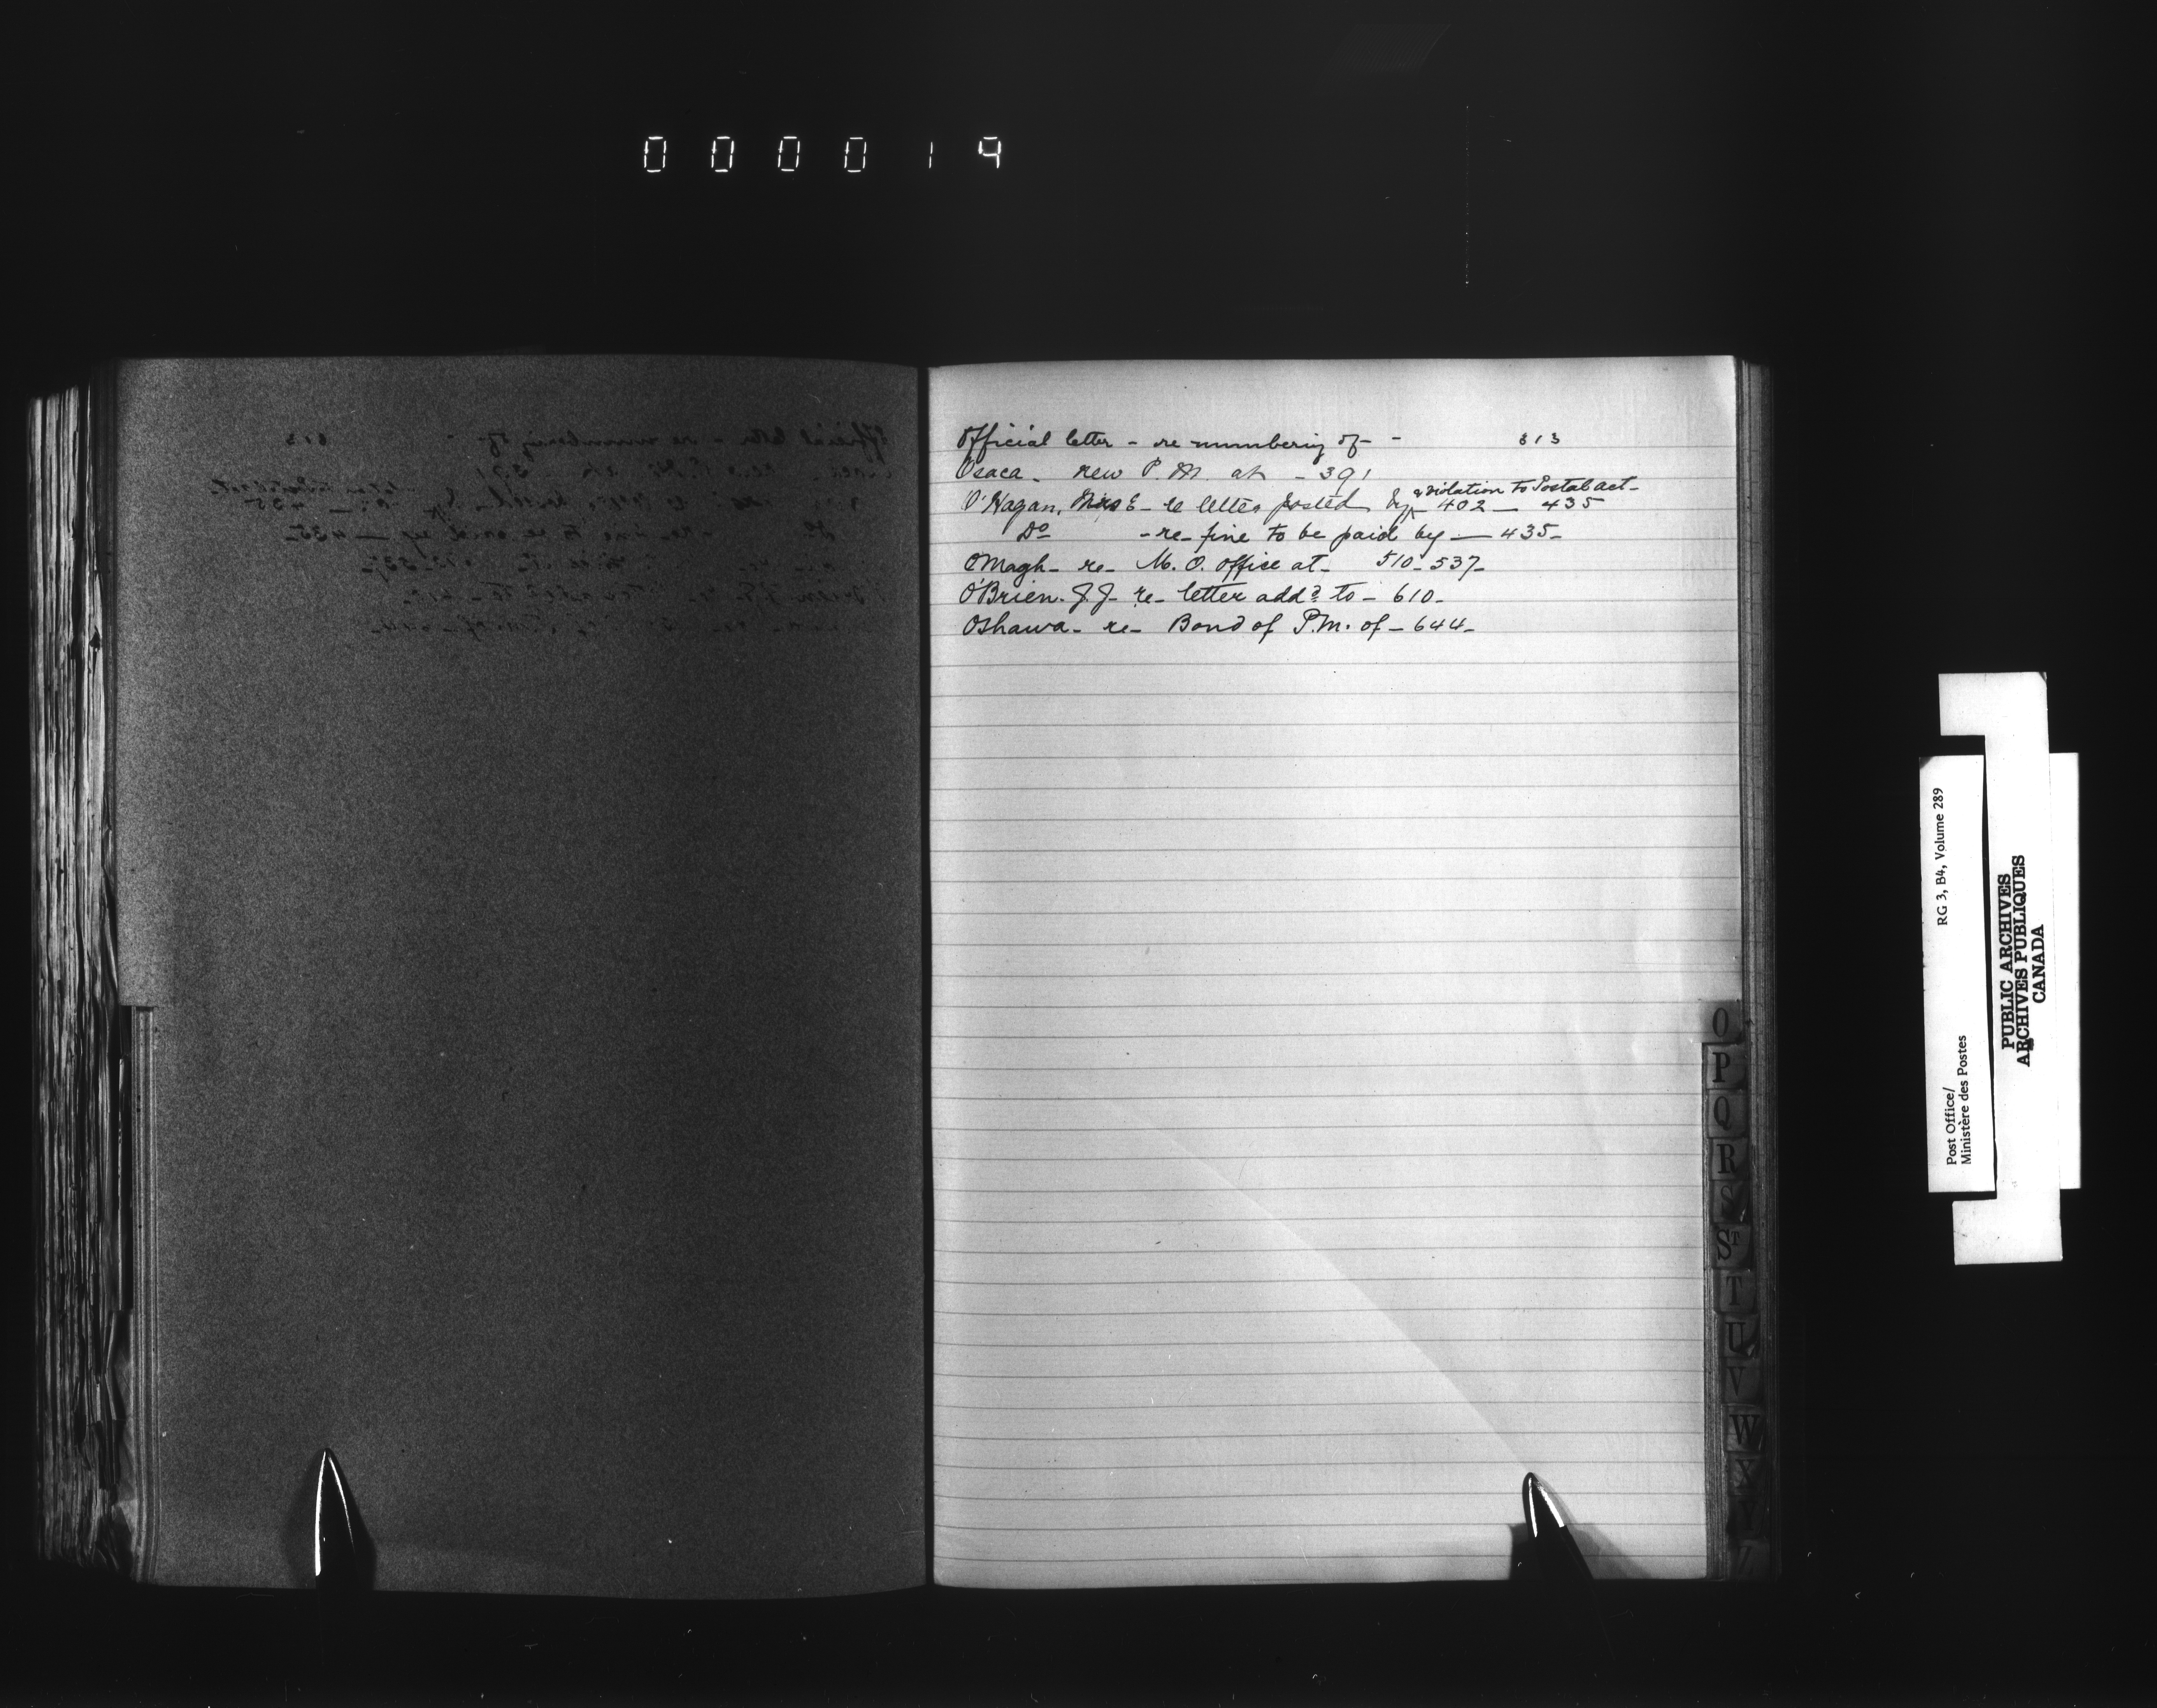 000019
Official letter - re numbering of - - 313
Osaca - new P. M. at - 391
a violation to Postal act -
O'Hagan, Miss E - re letter posted by - 402 - 435
Do - re - fine to be paid by - 435 -
Omagh - re - M. O. office at - 510 - 537 -
O'Brien. J. J - re - letter addd to - 610 -
Oshawa - re - Bond of P.M. of - 644 -
O
P
Q
R
S
ST
T
U
V
W
X
Y
Post Office/
Ministère des Postes
RG 3, B4, Volume 289
PUBLIC ARCHIVES
ARCHIVES PUBLIQUES
CANADA